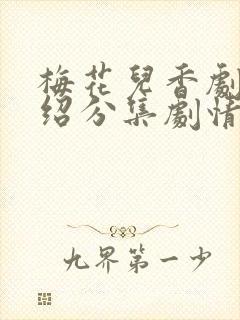 梅花兒香劇
紹分集劇情
九界第一少